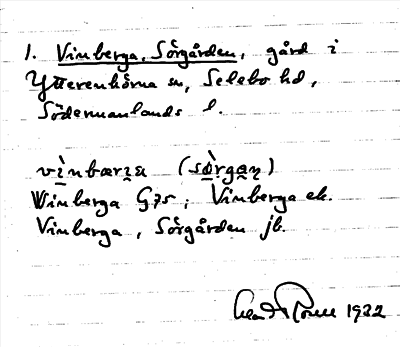 1. Vinberga, Sörgården, gård i
Ytterenhörna sn, Selebo hd,
Södermanlands l.
vìnbærɪa (sø̀rgaɳ)
Vinberga G75; Vinberga ek.
Vinberga, Sörgården jb.
1932